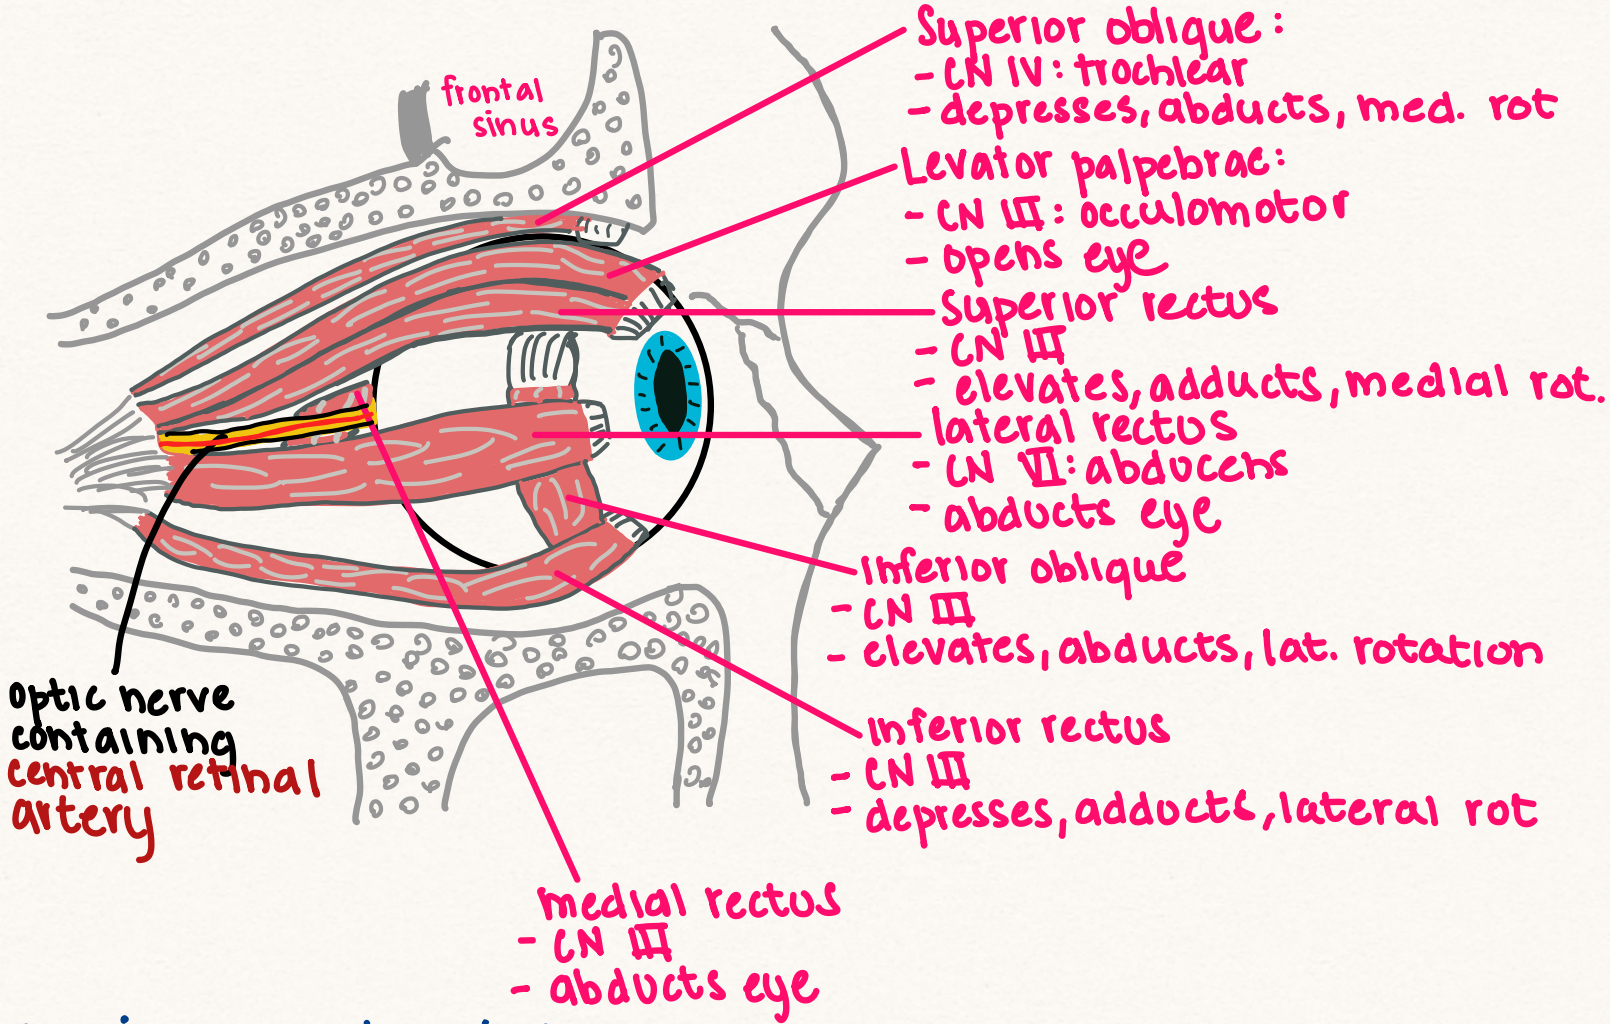 frontal
sinus
Superior oblique:
- CN IV: trochlear
- depresses, abducts, med. rot
Levator palpebrae:
- CN III: occulomotor
- opens eye
Superior rectus
- CN III
- elevates, adducts, medial rot.
lateral rectus
- CN VI: abducens
- abducts eye
Inferior oblique
- CN III
- elevates, abducts, lat. rotation
Inferior rectus
- CN III
- depresses, adducts, lateral rot
optic nerve
containing
central retinal
artery
medial rectus
- CN III
- abducts eye